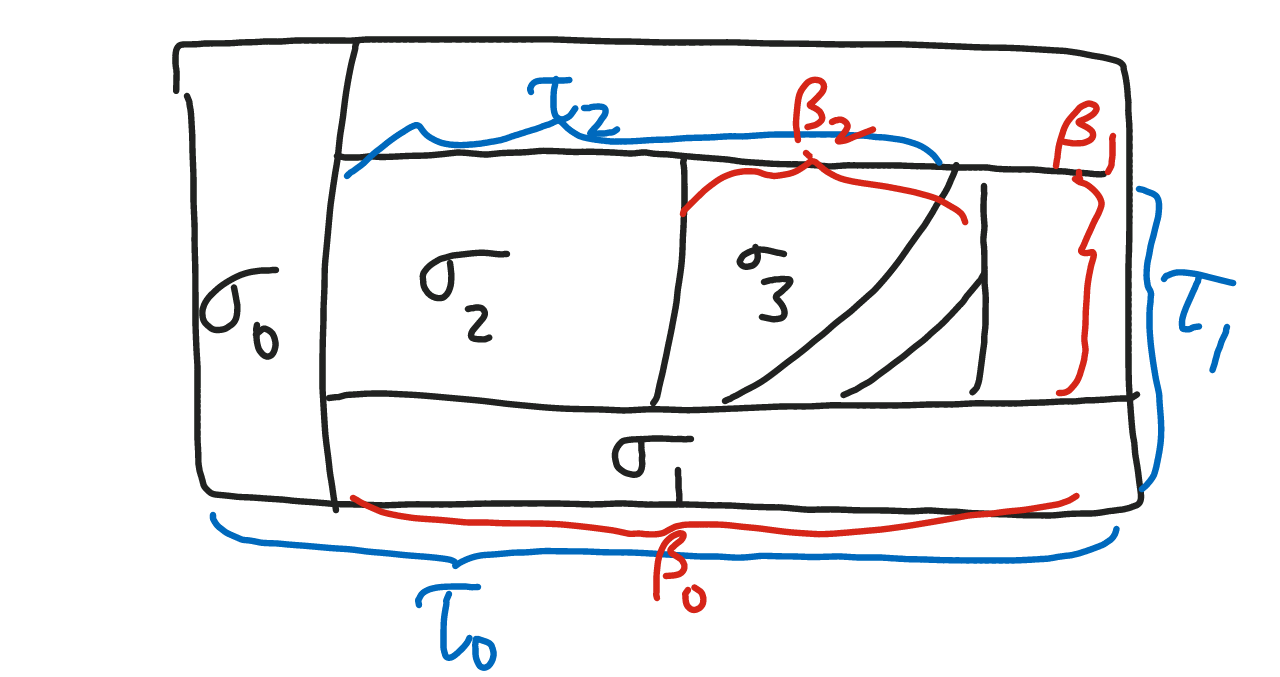 τ₂ β₂ β₁
σ₀ σ₂ σ₃ τ₁
σ₁
β₀
τ₀